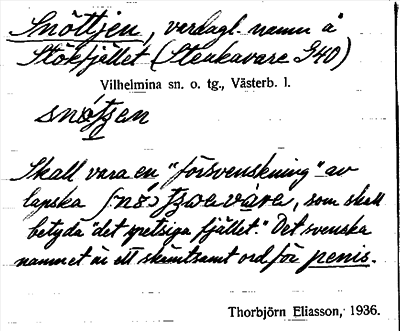 Snöttjen, vardagl. namn å
Stökfjället (Stenkavare 940)
Vilhelmina sn. o. tg., Västerb. l.
Skall vara en "försvenskning" av
lapska, som skall
betyda "det spetsiga fjället." Det svenska
namnet är ett skämtsamt ord för penis.
Thorbjörn Eliasson, 1936.